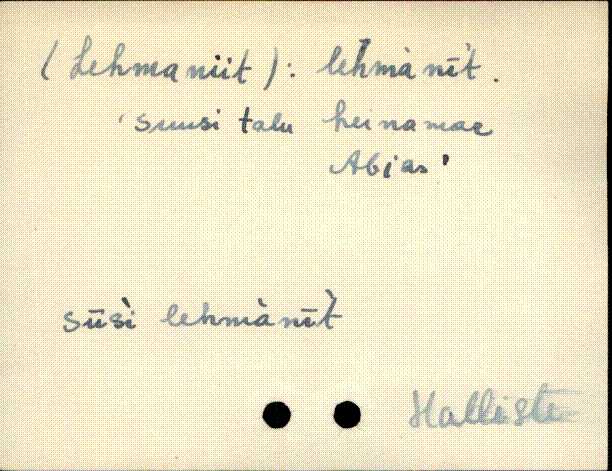 (Lehmaniit): lehmànī̀t.
'Suusi talu heinamae
Abjas'
sūsì lehmànī̀t
Halliste